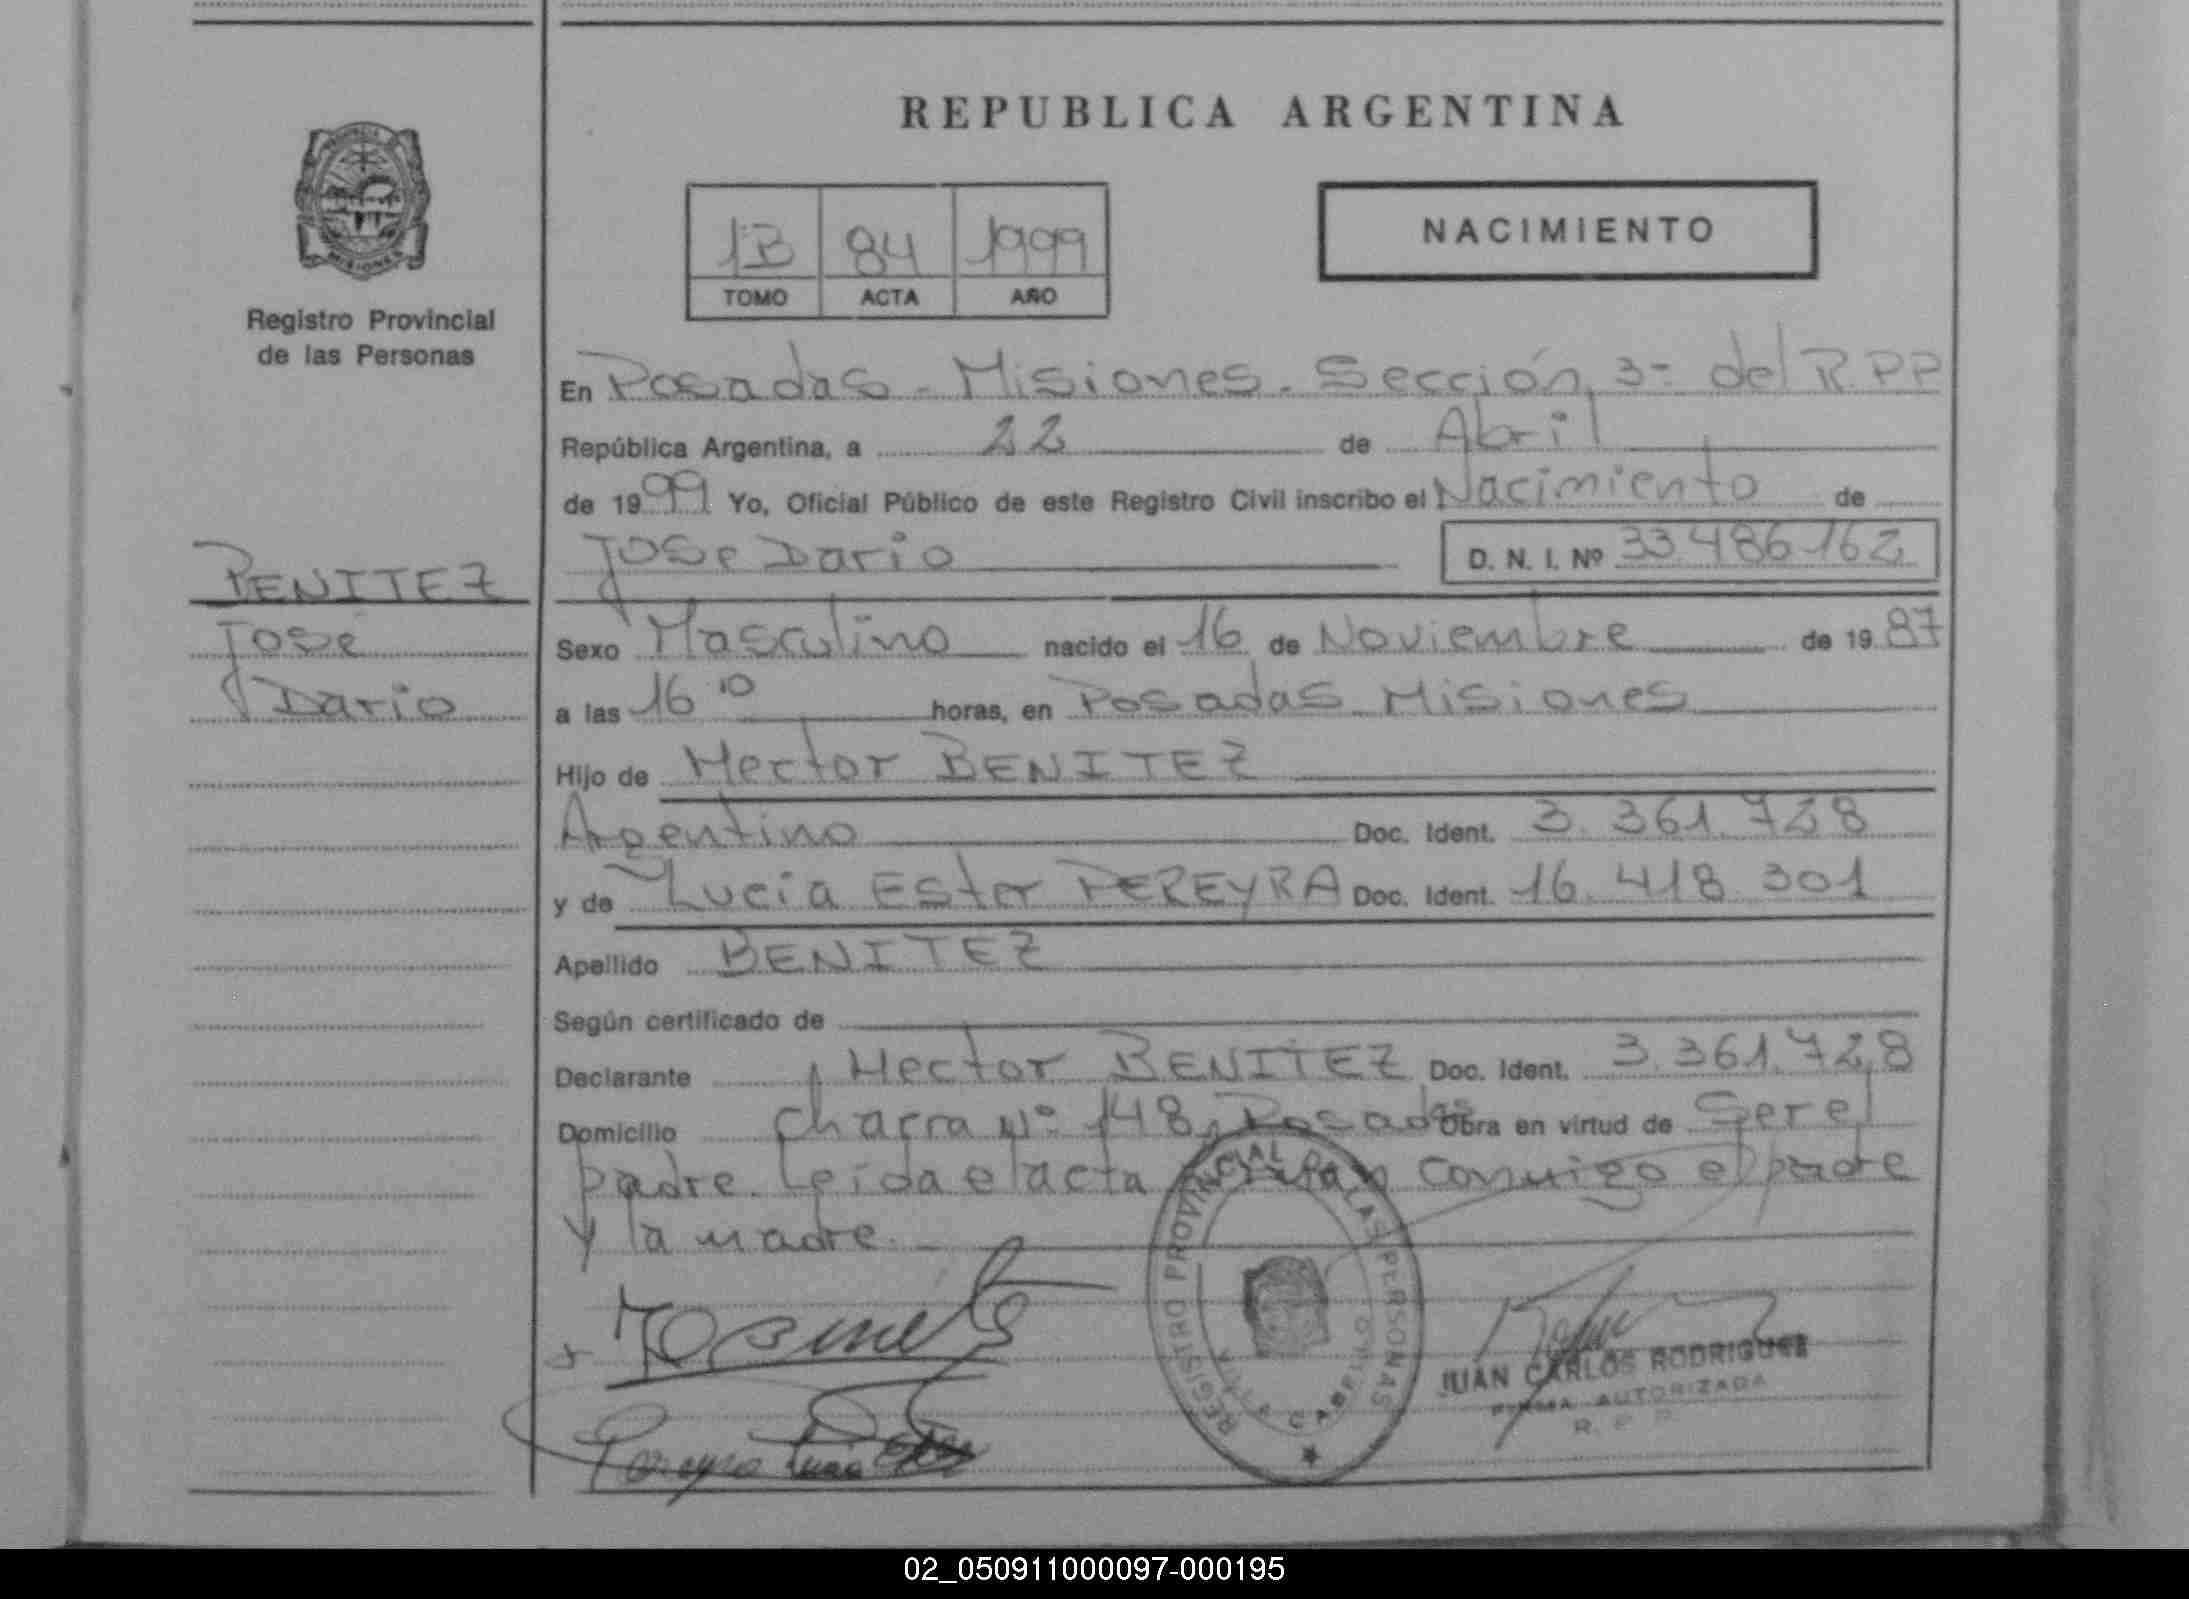 REPUBLICA ARGENTINA
NACIMIENTO
1B 84 1999
TOMO ACTA AÑO
PROVINCIA
MISIONES
Registro Provincial
de las Personas
BENITEZ
Jose
Dario
En Posadas - Misiones. Sección 3ª del R.P.P
República Argentina, a 22 de Abril
de 1999 Yo, Oficial Público de este Registro Civil inscribo el Nacimiento de
Jose Dario D. N. I. Nº 33.486.162
Sexo Masculino nacido el 16 de Noviembre de 1987
a las 16 10 horas, en Posadas Misiones
Hijo de Hector BENITEZ
Argentino Doc. Ident. 3.361.728
y de Lucia Ester PEREYRA Doc. Ident. 16.418.301
Apellido BENITEZ
Según certificado de
Declarante Hector BENITEZ Doc. Ident. 3.361.728
Domicilio Chacra Nº 148, Posadas Obra en virtud de Ser el
padre. Leida el acta firman conmigo el padre
y la madre.
REGISTRO PROVINCIAL DE LAS PERSONAS
JUAN CARLOS RODRIGUEZ
FIRMA AUTORIZADA
R. P. P.
Pereyra Lucia
02_050911000097-000195